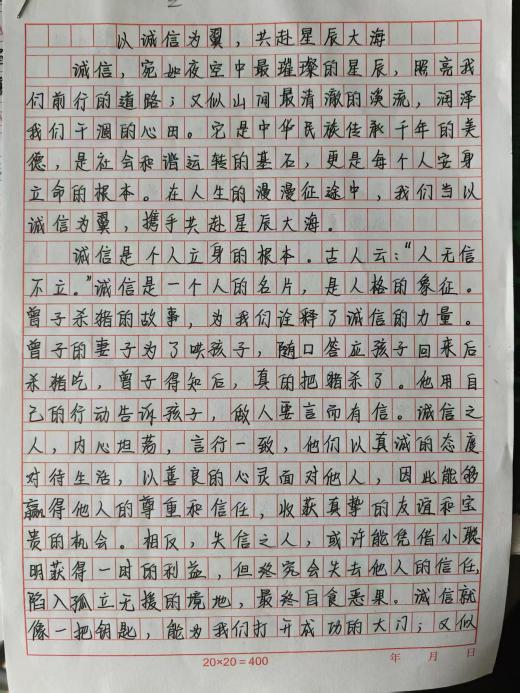 以诚信为翼，共赴星辰大海
诚信，宛如夜空中最璀璨的星辰，照亮我
们前行的道路；又似山间最清澈的溪流，润泽
我们干涸的心田。它是中华民族传承千年的美
德，是社会和谐运转的基石，更是每个人安身
立命的根本。在人生的漫漫征途中，我们当以
诚信为翼，携手共赴星辰大海。
诚信是个人立身的根本。古人云：“人无信
不立。”诚信是一个人的名片，是人格的象征。
曾子杀猪的故事，为我们诠释了诚信的力量。
曾子的妻子为了哄孩子，随口答应孩子回来后
杀猪吃，曾子得知后，真的把猪杀了。他用自
己的行动告诉孩子，做人要言而有信。诚信之
人，内心坦荡，言行一致，他们以真诚的态度
对待生活，以善良的心灵面对他人，因此能够
赢得他人的尊重和信任，收获真挚的友谊和宝
贵的机会。相反，失信之人，或许能凭借小聪
明获得一时的利益，但终究会失去他人的信任，
陷入孤立无援的境地，最终自食恶果。诚信就
像一把钥匙，能为我们打开成功的大门；又似
20×20＝400 年 月 日